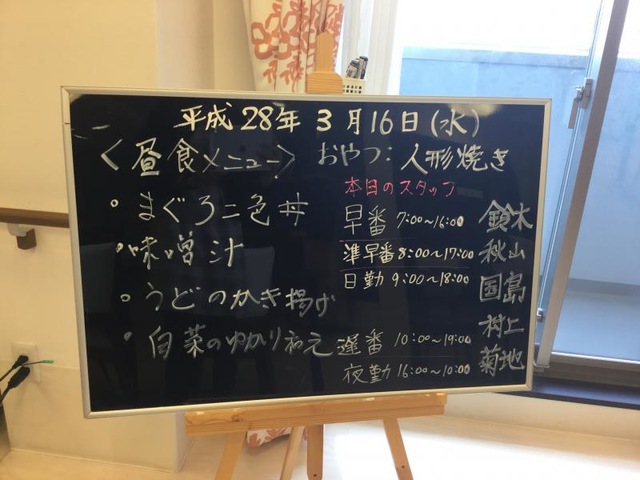 平成28年 3月16日(水)
<昼食メニュー>
・まぐろ二色丼
・味噌汁
・うどのかき揚げ
・白菜のゆかり和え
おやつ:人形焼き
本日のスタッフ
早番 7:00〜16:00 鈴木
準早番 8:00〜17:00 秋山
日勤 9:00〜18:00 国島
遅番 10:00〜19:00 村上
夜勤 16:00〜10:00 菊地